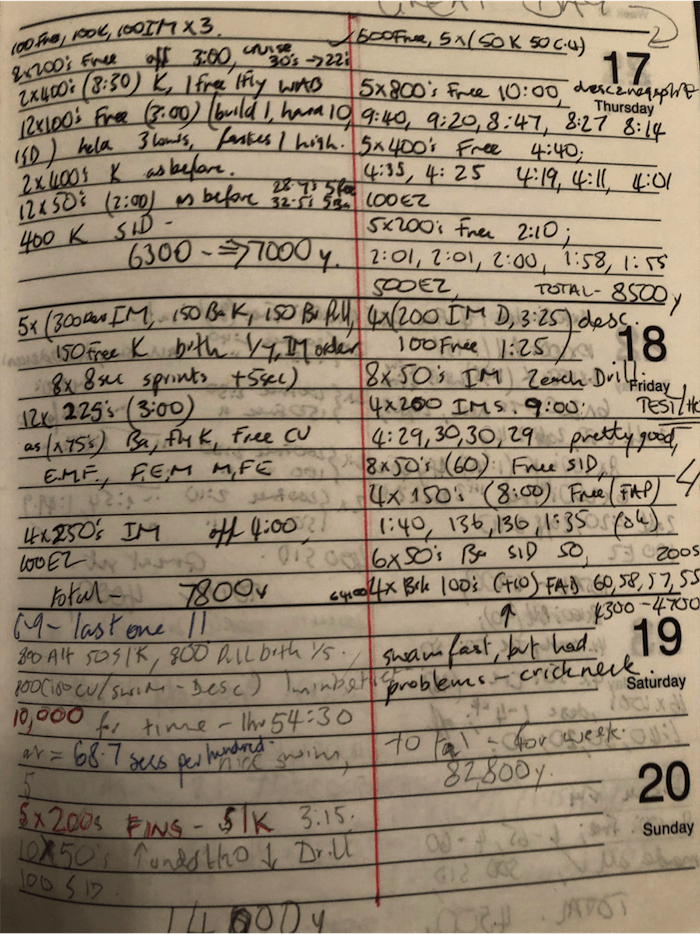 GREAT DAY
100 Free, 100K, 100IM x 3.
8x200's Free off 3:00, cruise
30's → 22's
2x400's (8:30) K, 1 free 1 fly
12x100's Free (3:00) (build 1, hard 10,
1SD) held 3 lows, fastest 1 high.
2x400's K as before.
12x50's (2:00) as before 28.7's 5 free
32.5's 5 Ba
400 K SID -
6300 - ⇒ 7000y.
5x(300 IM, 150 Ba K, 150 Br Pull,
150 Free K brth 1/7, IM order
8x8sec sprints +5sec)
12x 225's (3:00)
as (x75's) Ba, fly K, Free CU
E.M.F., F.E.M M,F,E
4x250's IM off 4:00,
100 EZ
total - 7800y
AM - last one !!
800 Alt 50 S/K, 800 Pull brth 1/5.,
800(100 CU/swim - Desc)
10,000 for time - 1hr 54:30
av = 68.7 secs per hundred. nice swim,
5
5x200s FINS - S/K 3:15.
10x50's ↑ und H2O ↓ Drill
100 SID.
14,600y
600Free, 5x(50K 50CU)
17
Thursday
5x800's Free 10:00, desc 2 neg split
9:40, 9:20, 8:47, 8:27 8:14
5x400's Free 4:40;
4:35, 4:25 4:19, 4:11, 4:01
100EZ
5x200's Free 2:10;
2:01, 2:01, 2:00, 1:58, 1:55
500EZ, TOTAL - 8500y
4x(200 IM D, 3:25) desc.
100 Free 1:25
18
Friday
8x50's IM 2each Drill
4x200 IMS. 9:00: TEST/HC
4:29, 30, 30, 29 pretty good,
8x50's (60) Free SID,
4x150's (8:00) Free (FAP)
1:40, 136, 136, 1:35 (ok)
6x50's Ba SID 50, 200s
4x Brk 100's (+10) FAP 60, 58, 57, 55
↑ 4300 - 4700
swam fast, but had
problems - crick neck.
19
Saturday
total - for week.
82,800y.
20
Sunday